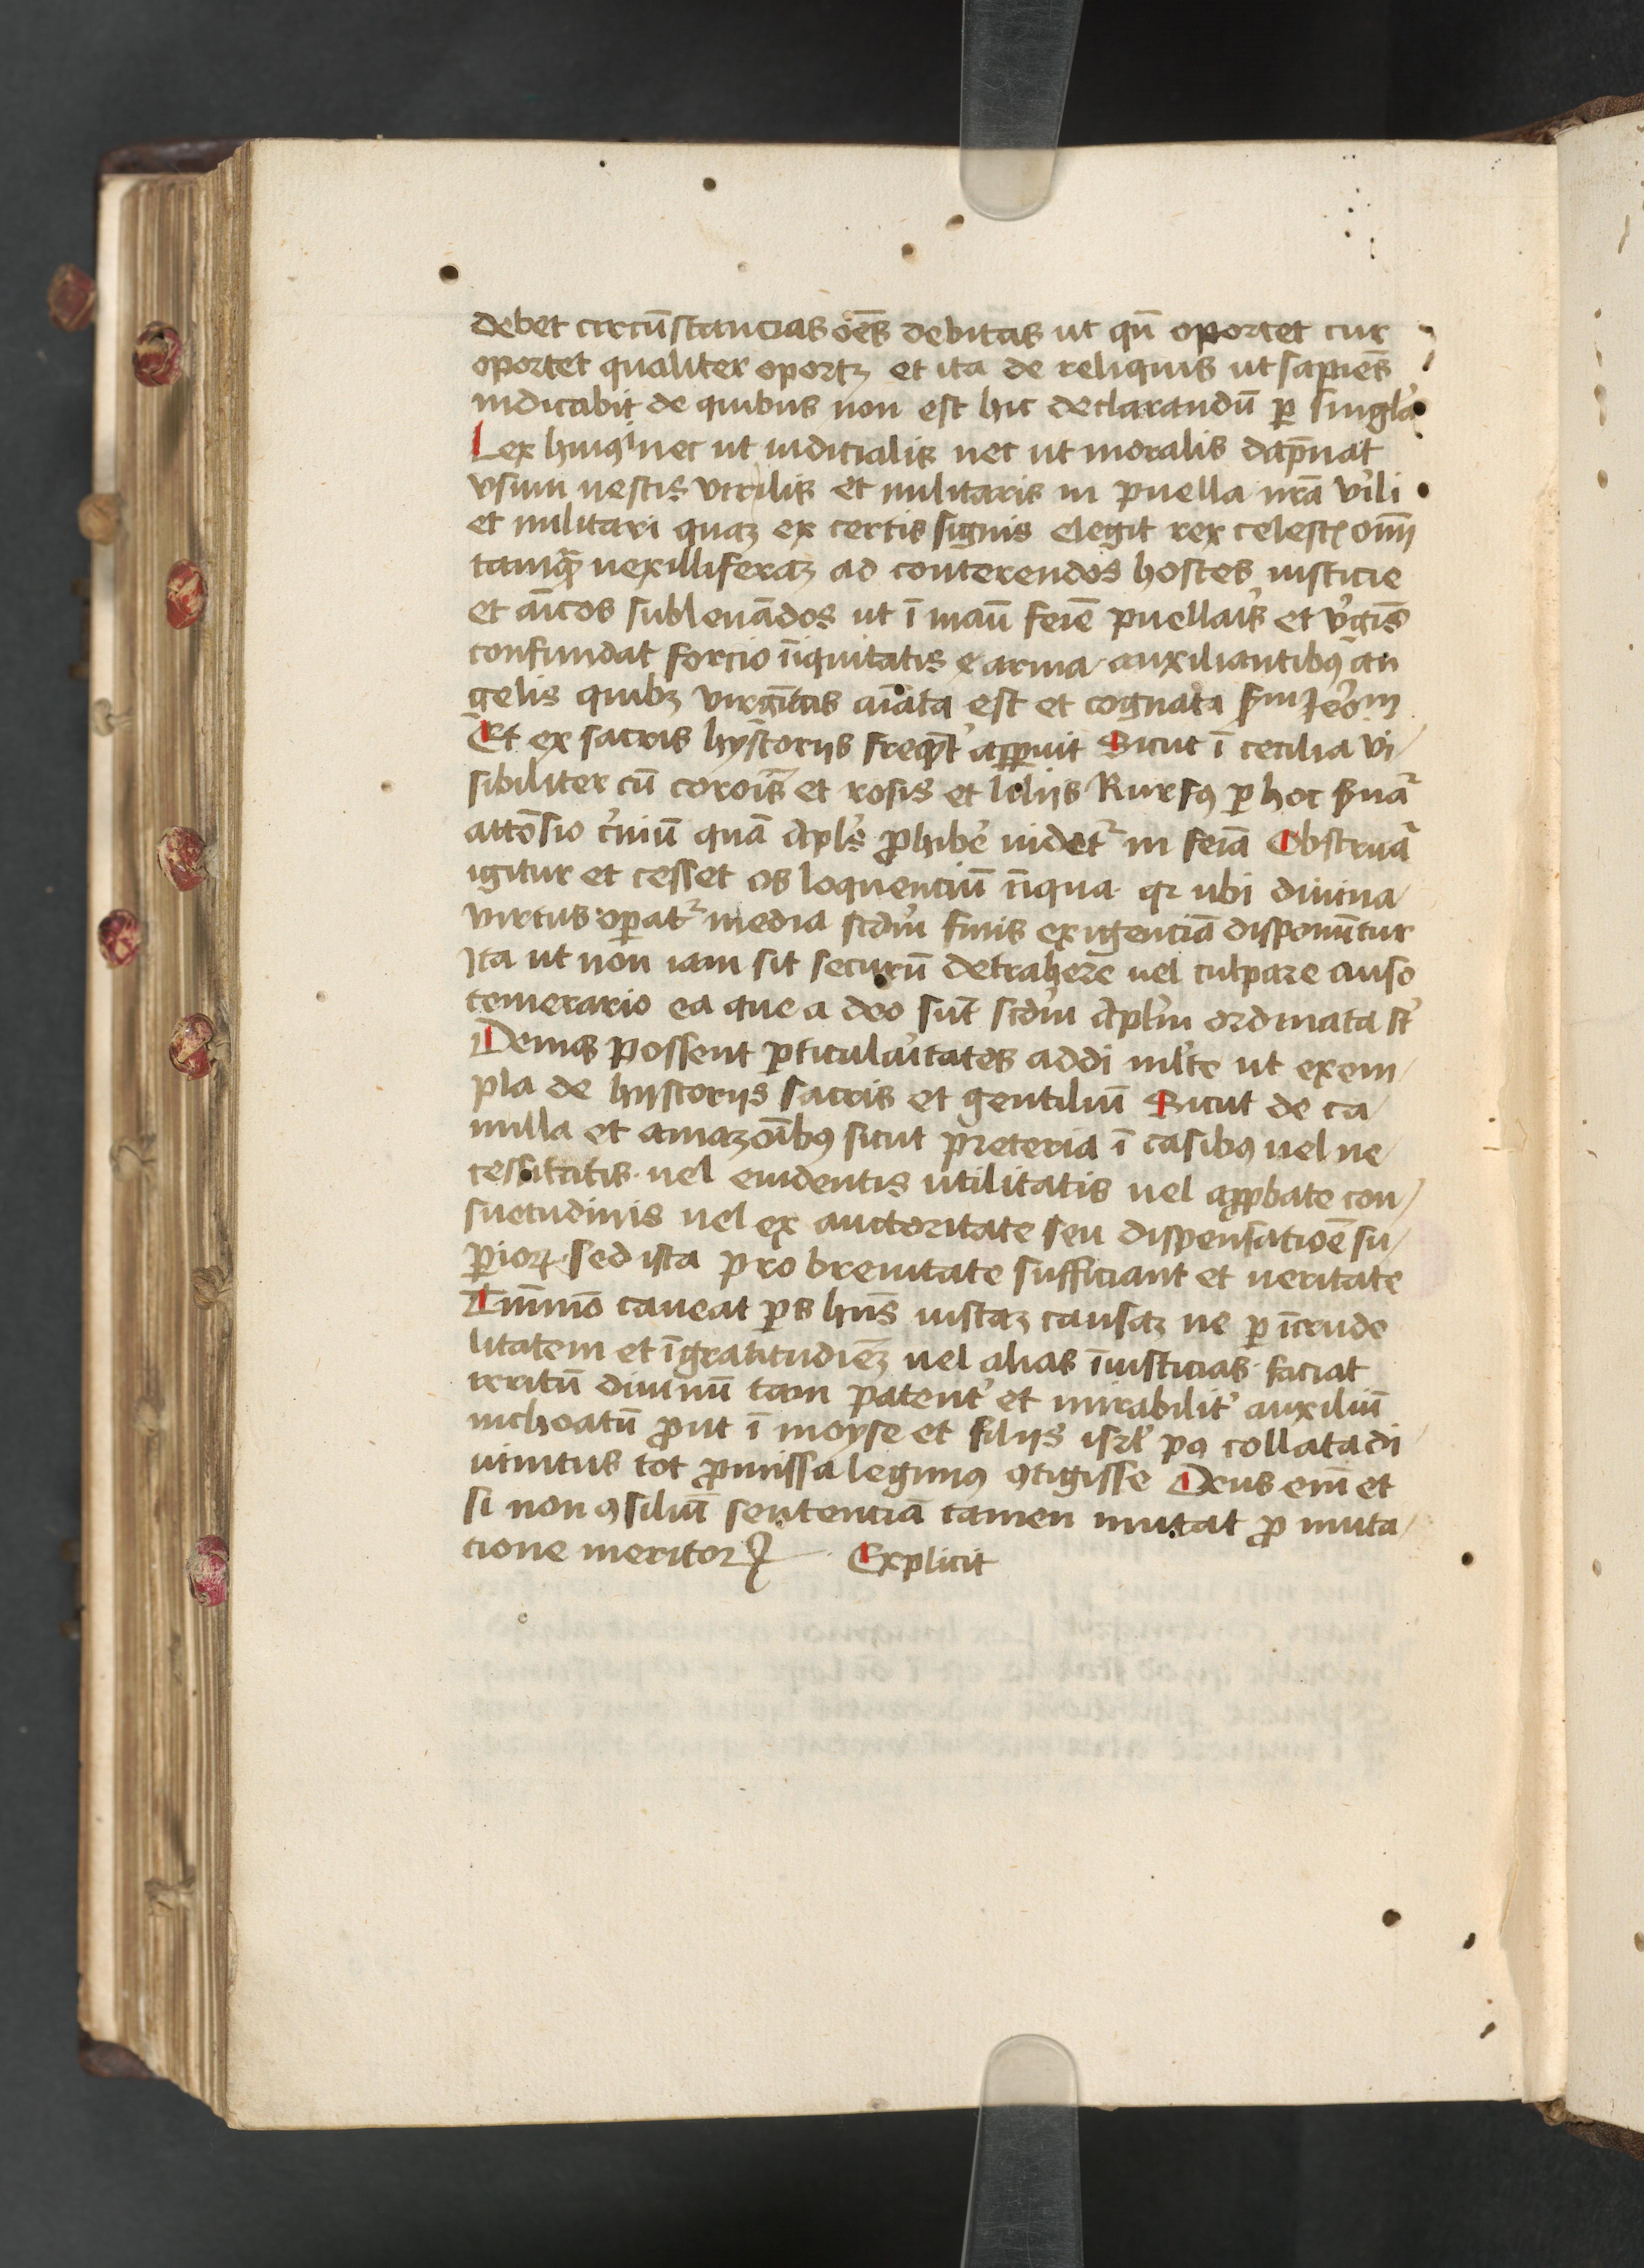 debet circūstancias oēs debitas ut qn̄ oportet cur
oportet qualiter oportꝫ et ita de reliquis ut sapiēs
iudicabit de quibus non est hic declarandū ꝑ singl'a
Lex huiꝰi nec ut iudicialis nec ut moralis dāpnat
vsum uestis virilis et militaris in puella nr̄a v'ili
et militari quaꝫ ex certis signis elegit rex celestꝭ om̄
tamꝙ̄ uexilliferaꝫ ad conterendos hostes iusticie
et amīcos subleuādos ut ī manū feīe puellaīs et v'gīs
confundat forcio iniquitatis arma auxiliantibꝰ an
gelis quibꝫ virgītas amata est et cognata scd'm Jeroī
Et ex sacris hystoriis freqn̄t' apparuit Sicut ī cecilia vi
sibiliter cū coroīs et rosis et liliis Rursꝰ ꝑ hoc saluat᷑
attōsio c'niū quā apl's ꝓhibe' uidet᷑ in feīa Obstruat᷑
igitur et cesset os loquenciū īiqua qꝛ ubi diuina
virtus oꝑat᷑ media scd'm finis exigenciā disponūtur
Ita ut non iam sit securū detrahere uel culpare auso
temerario ea que a deo sūt scd'm apl'm ordinata st'
Deniqꝫ possent ꝑticularitates addi ml'te ut exem
pla de hystoriis sacris et gentiliū Sicut de ca
milla et amazoībꝰ sicut preteria ī casibꝰ uel ne
cessitatis uel euidentis utilitatis uel apꝓbate con
suetudinis uel ex auctoritate seu dispensatioē su
ꝑioꝝ sed ista pro breuitate sufficiant et ueritate
Tm̄mō caueat ꝑs hn̄s iustaꝫ causaꝫ ne ꝑ īcrude
litatem et īgratitudīeꝫ uel alias īiusticias faciat
irritū diuinū tam patent' et mirabilit' auxiliū
inchoatū ꝓut ī moyse et filiis isrl' pꝰ collata di
uinitus tot ꝓmissa legimꝰ ꝯtigisse Deus em̄ et
si non ꝯsiliū sentenciā tamen mutat ꝓ muta
cione meritoꝝ Explicit